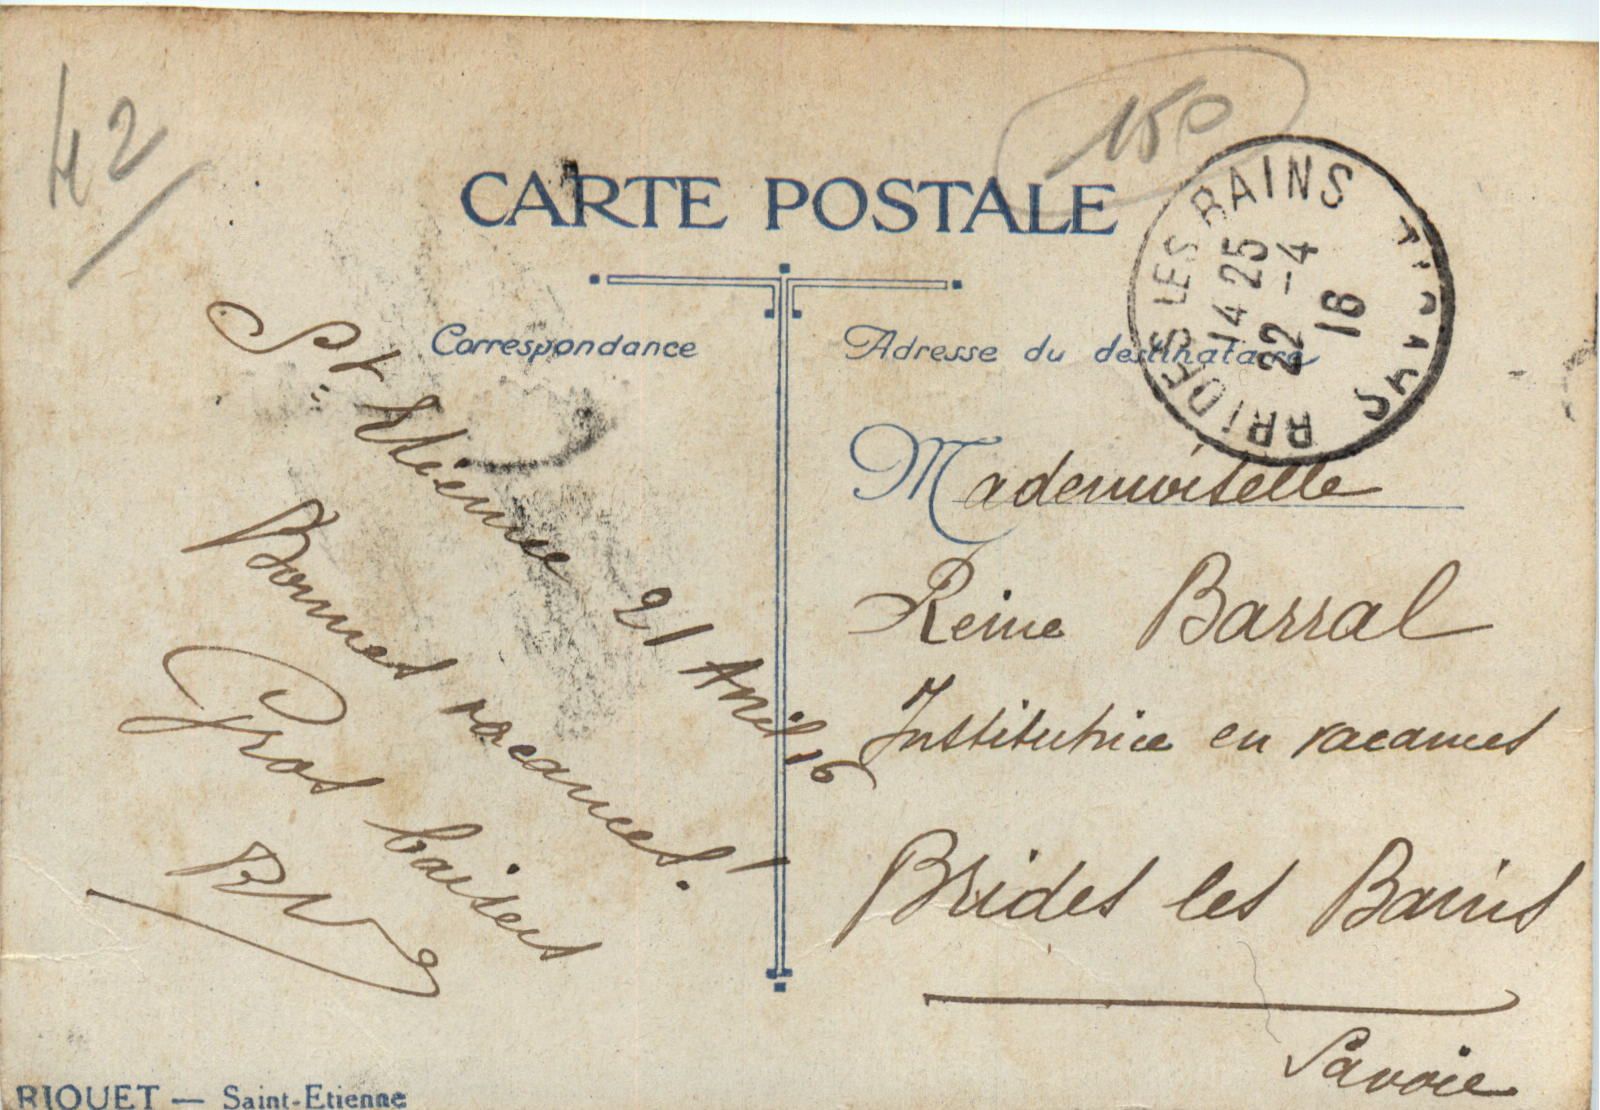 42
150
CARTE POSTALE
Correspondance
Adresse du destinataire
BRIDES LES BAINS
SAVOIE
14 25
22 -4
16
St Etienne 21 Avril 16
Bonnes vacances!
Gros baisers
Mademoiselle
Reine Barral
Institutrice en vacances
Brides les Bains
Savoie
RIQUET — Saint-Etienne